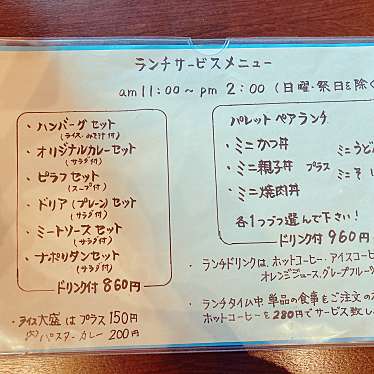 ランチサービスメニュー
am 11:00～pm 2:00 (日曜・祭日を除く
・ハンバーグセット
(ライス・みそ汁付)
・オリジナルカレーセット
(サラダ付)
・ピラフセット
(スープ付)
・ドリア(プレーン)セット
(サラダ付)
・ミートソースセット
(サラダ付)
・ナポリタンセット
(サラダ付)
ドリンク付 860円
・ライス大盛はプラス150円
パスタ・カレー 200円
パレットペアランチ
・ミニかつ丼
・ミニ親子丼 プラス
・ミニ焼肉丼
ミニうど
ミニそ
各1つづつ選んで下さい!
ドリンク付 960円
・ランチドリンクは、ホットコーヒー・アイスコー
オレンジジュース、グレープフルー
・ランチタイム中 単品の食事もご注文の
ホットコーヒーを280円でサービス致し